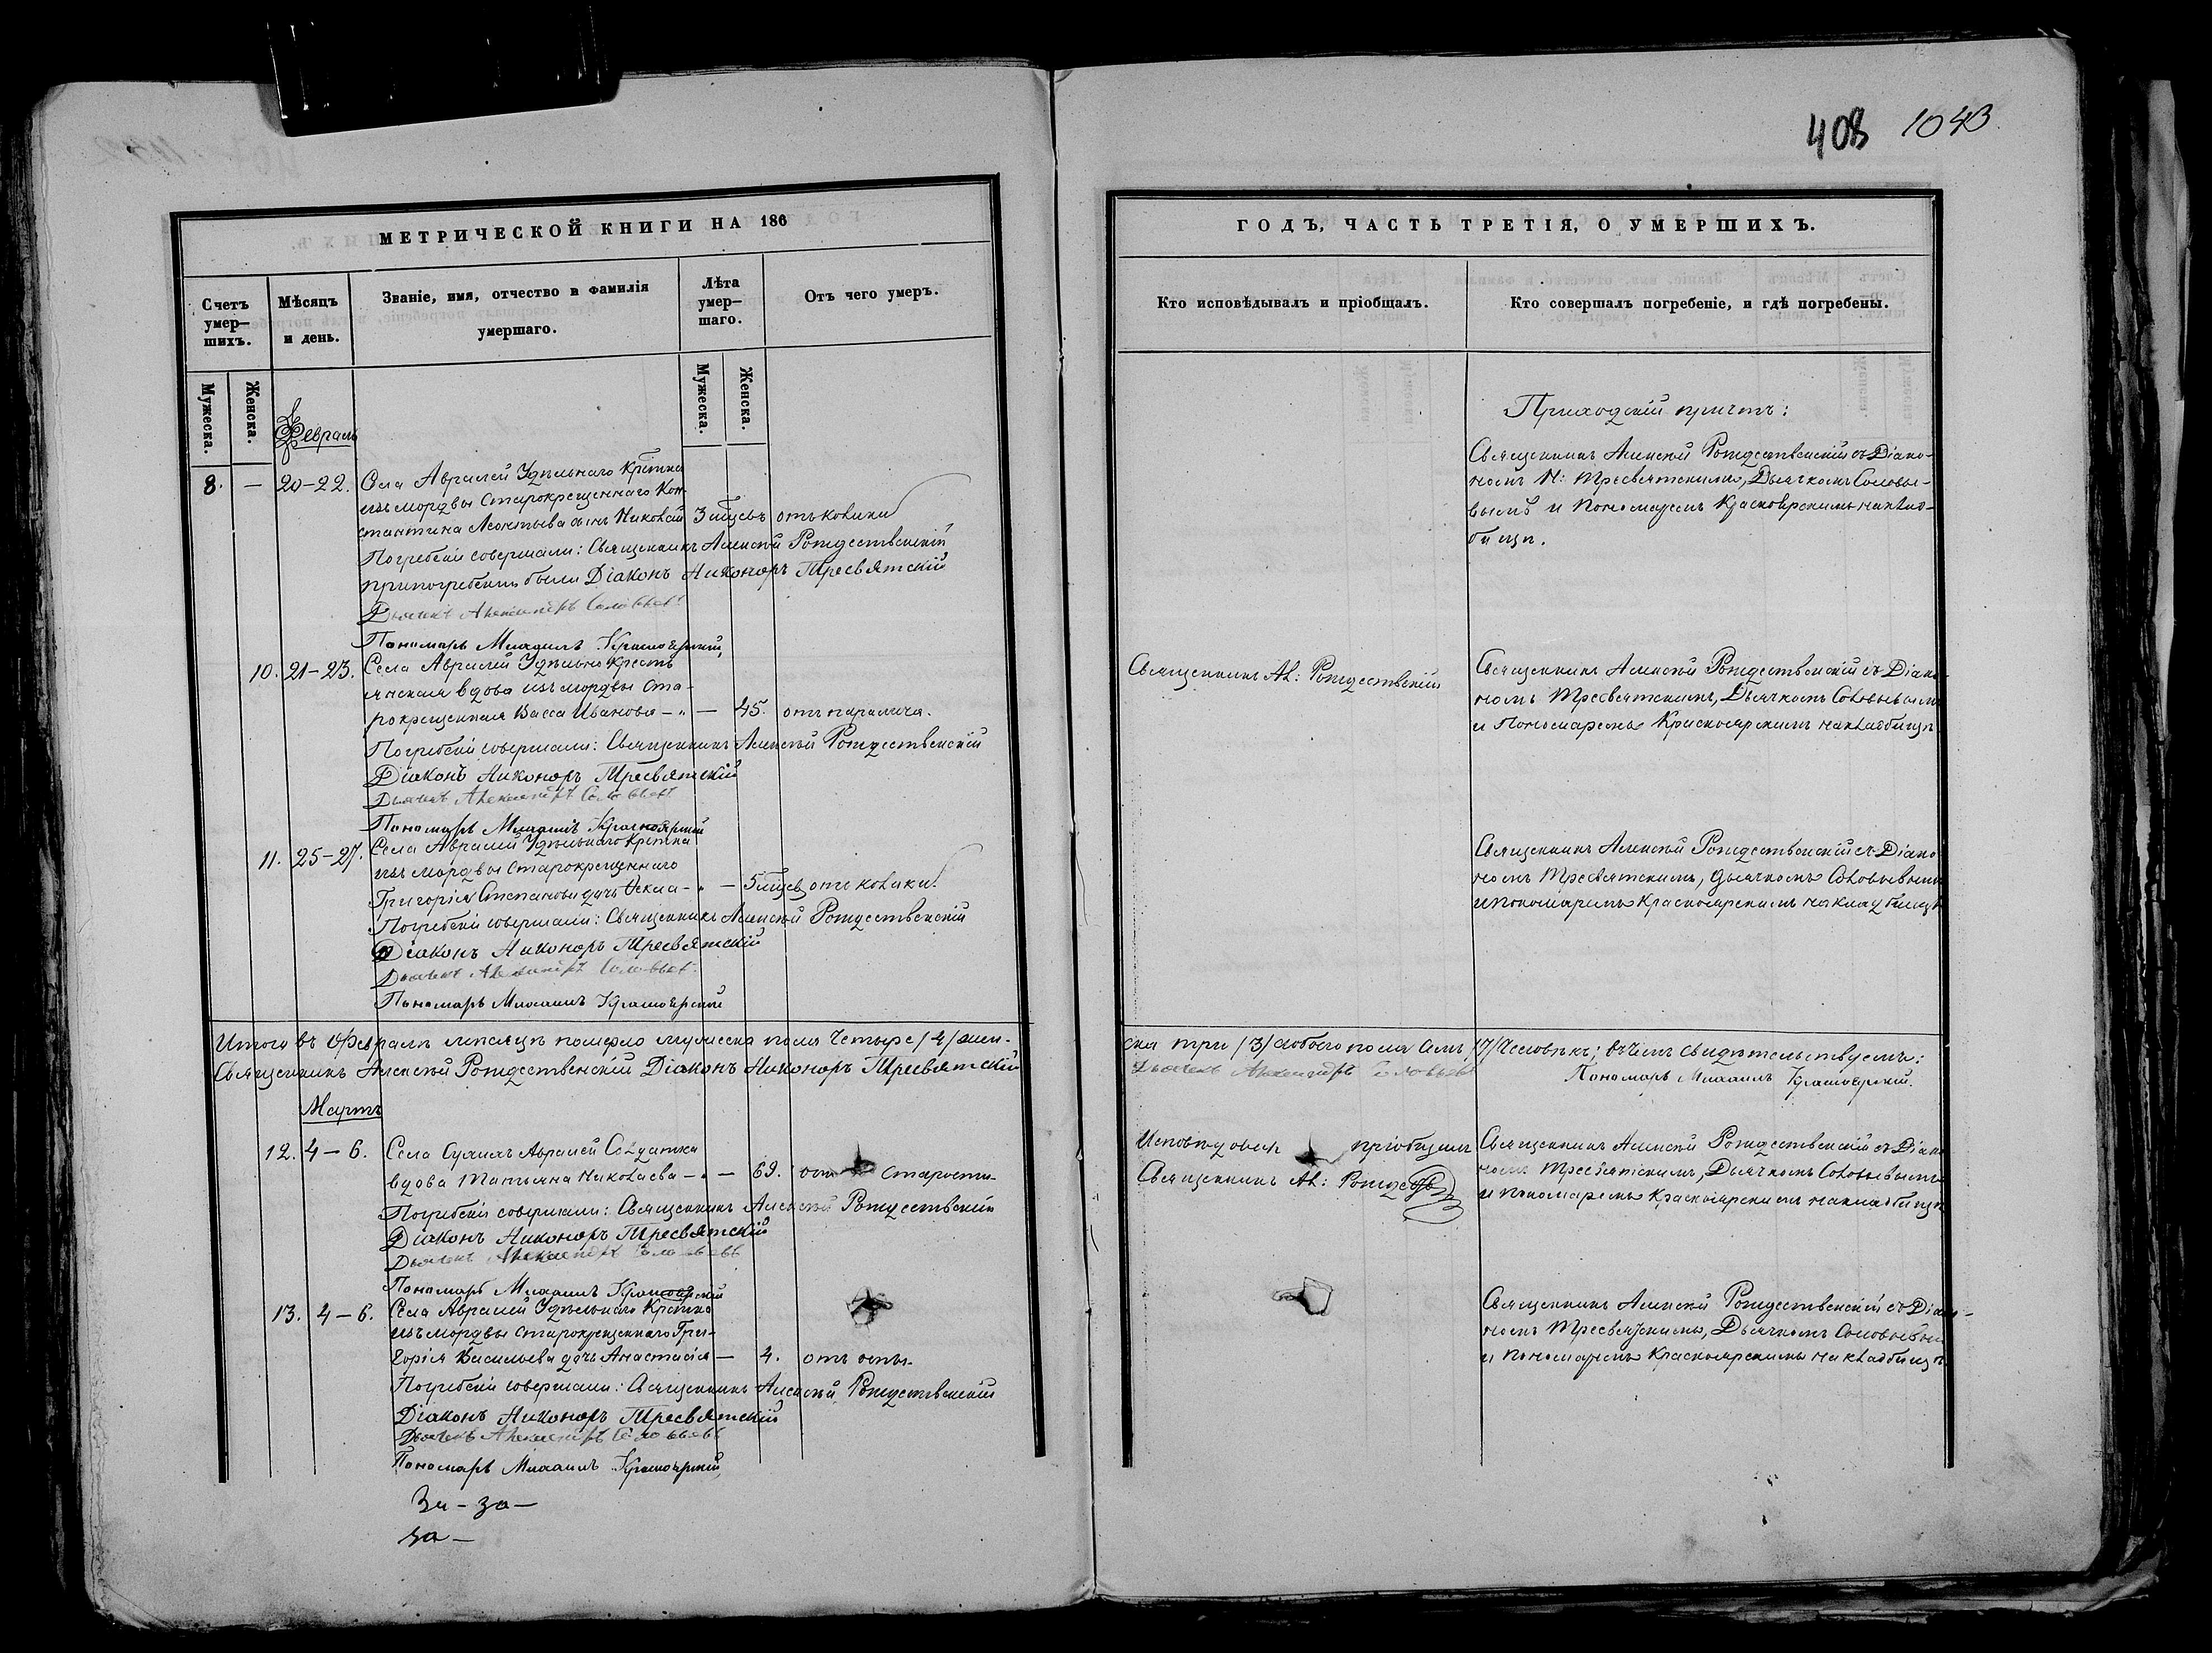 408 1043
МЕТРИЧЕСКОЙ КНИГИ НА 186
Счетъ умер-
шихъ.
Мѣсяцъ
и день.
Званіе, имя, отчество и фамилія
умершаго.
Лѣта
умер-
шаго.
Отъ чего умеръ.
Мужеска.
Женска.
Мужеска.
Женска.
Февраль
8. — 20-22. Села Авралей Удѣльнаго Крестна
изъ мордвы старокрещеннаго Кон-
стантина Леонтьева сынъ Николай 3 отъ
Погребеніе совершали: Священникъ Алексѣй Рождественскій
при погребеніи были Діаконъ Никоноръ Тресвятскій
Дьячекъ Александръ Соловьевъ
Пономарь Михаилъ Красноярскій
10. 21-23. Села Авралей Удѣльно Кресть
янская вдова изъ мордвы ста-
рокрещенная Васса Иванова — „ — 45. отъ паралича.
Погребеніе совершали: Священникъ Алексѣй Рождественскій
Діаконъ Никоноръ Тресвятскій
Дьячекъ Александръ Соловьевъ
Пономарь Михаилъ Красноярскій
11. 25-27. Села Авралей Удѣльнаго Крестна
изъ мордвы старокрещеннаго
Григорія Степанова дочь Фекла — „ — 5 отъ
Погребеніе совершали: Священникъ Алексѣй Рождественскій
Діаконъ Никоноръ Тресвятскій
Дьячекъ Александръ Соловьевъ
Пономарь Михаилъ Красноярскій
Итого въ Февралѣ мѣсяцѣ померло мужеска пола четыре /4/ жен-
Священникъ Алексѣй Рождественскій Діаконъ Никоноръ Тресвятскій
Мартъ
12. 4-6. Села Авралей Солдатка
вдова Татьяна Николаева — „ — 69. отъ старости
Погребеніе совершали: Священникъ Алексѣй Рождественскій
Діаконъ Никоноръ Тресвятскій
Дьячекъ Александръ Соловьевъ
Пономарь Михаилъ Красноярскій
13. 4-6. Села Авралей Удѣльнаго Крестна
изъ мордвы старокрещеннаго Гри-
горія Васильева дочь Анастасія — 4. отъ оспы.
Погребеніе совершали: Священникъ Алексѣй Рождественскій
Діаконъ Никоноръ Тресвятскій
Дьячекъ Александръ Соловьевъ
Пономарь Михаилъ Красноярскій
За - за -
за -
ГОДЪ, ЧАСТЬ ТРЕТІЯ, О УМЕРШИХЪ.
Кто исповѣдывалъ и пріобщалъ.
Кто совершалъ погребеніе, и гдѣ погребены.
Приходскій причтъ:
Священникъ Алексѣй Рождественскій съ Діако-
номъ Н: Тресвятскимъ, Дьячкомъ Соловье-
вымъ и Пономаремъ Красноярскимъ на клад-
бищѣ.
Священникъ Ал: Рождественскій
Священникъ Алексѣй Рождественскій съ Діако
номъ Тресвятскимъ, Дьячкомъ Соловьевымъ
и Пономаремъ Красноярскимъ на кладбищѣ
Священникъ Алексѣй Рождественскій съ Діако
номъ Тресвятскимъ, дьячкомъ Соловьевымъ
и пономаремъ Красноярскимъ на кладбищѣ
ска три /3/ обоего пола семь /7/ человѣкъ; въ чемъ свидѣтельствуемъ:
Дьячекъ Александръ Соловьевъ Пономарь Михаилъ Красноярскій.
Исповѣдовалъ пріобщалъ
Священникъ Ал: Рождеств
Священникъ Алексѣй Рождественскій съ Діако
номъ Тресвятскимъ, Дьячкомъ Соловьевымъ
и пономаремъ Красноярскимъ на кладбищѣ
Священникъ Алексѣй Рождественскій съ Діако-
номъ Тресвятскимъ, Дьячкомъ Соловьевым
и пономаремъ Красноярскимъ на кладбищѣ